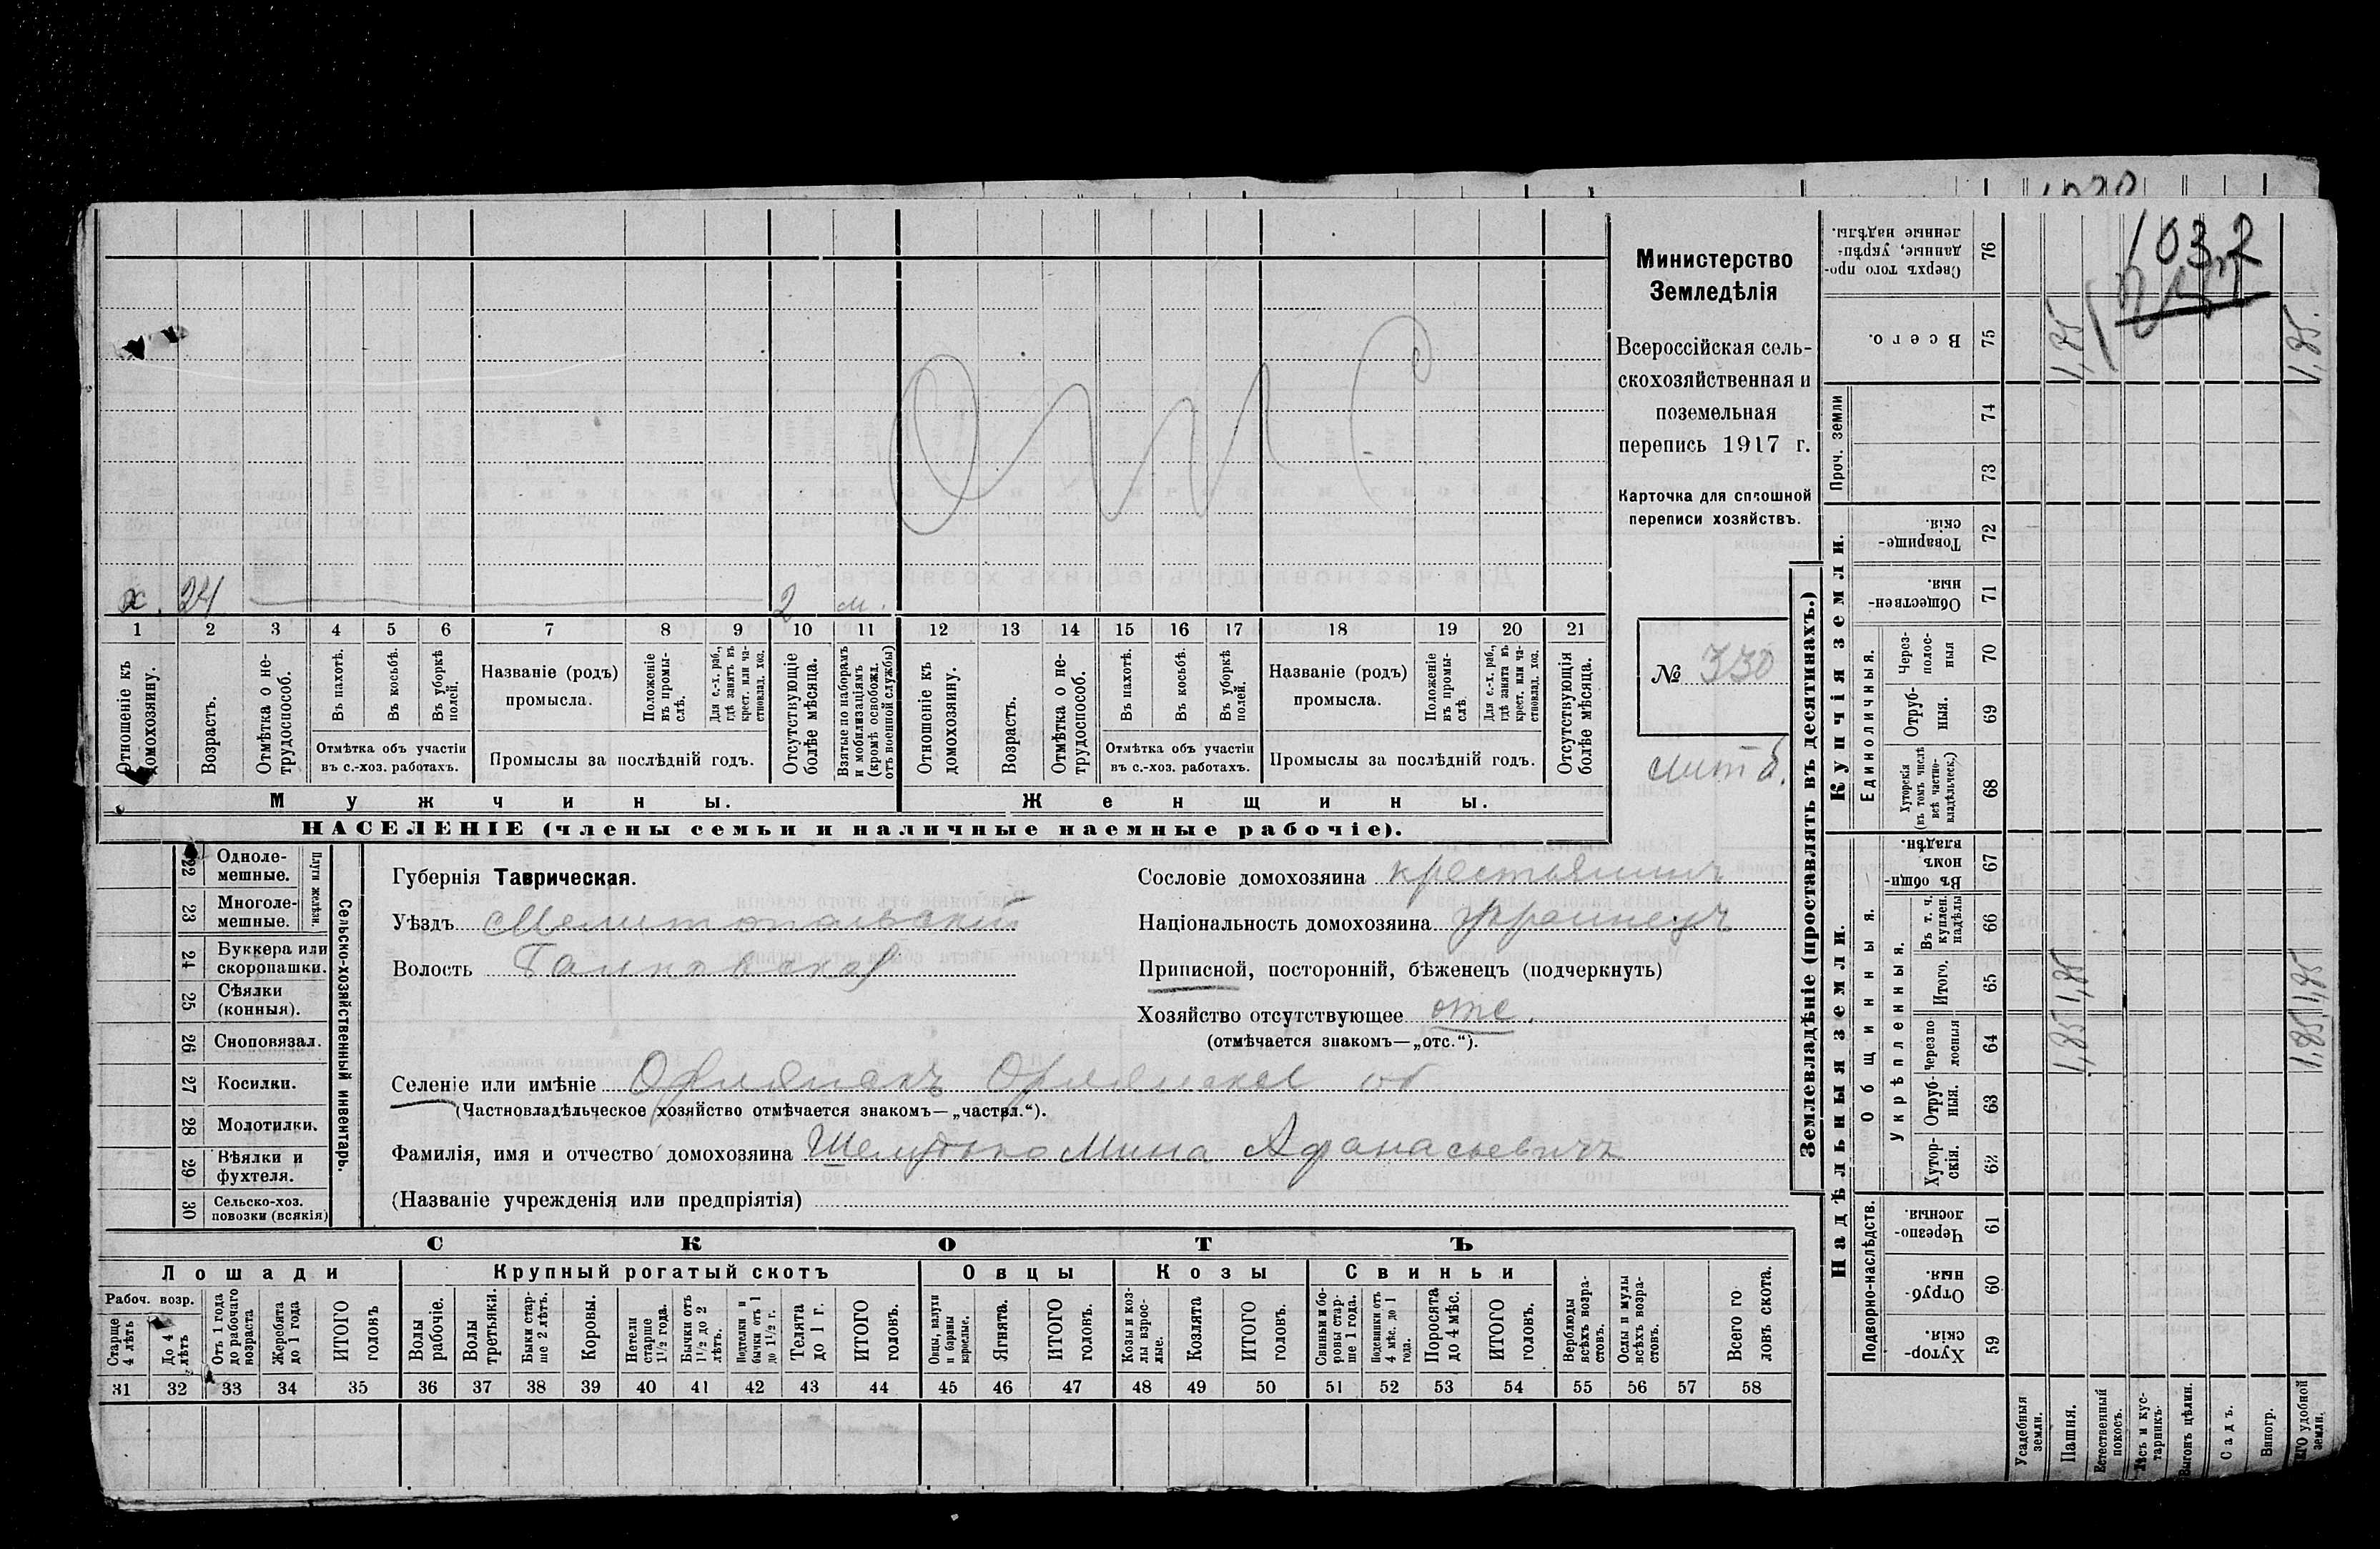 1032
Министерство
Земледѣлія
Всероссійская сель-
скохозяйственная и
поземельная
перепись 1917 г.
Карточка для сплошной
переписи хозяйствъ.
№ 330
х. 24 2 м.
1 2 3 4 5 6 7 8 9 10 11 12 13 14 15 16 17 18 19 20 21
Отношеніе къ домохозяину.
Возрастъ.
Отмѣтка о не-трудоспособ.
Въ пахотѣ.
Въ косьбѣ.
Въ уборкѣ полей.
Отмѣтка объ участіи
въ с.-хоз. работахъ.
Названіе (родъ)
промысла.
Положеніе въ промы-слѣ.
Для с.-х. раб., гдѣ занятъ въ крест. или ча-стновлад. хоз.
Промыслы за послѣдній годъ.
Отсутствующіе болѣе мѣсяца.
Взятые по наборамъ и мобилизаціямъ (кромѣ освобожд. отъ военной службы)
Отношеніе къ домохозяину.
Возрастъ.
Отмѣтка о не-трудоспособ.
Въ пахотѣ.
Въ косьбѣ.
Въ уборкѣ полей.
Отмѣтка объ участіи
въ с.-хоз. работахъ.
Названіе (родъ)
промысла.
Положеніе въ промы-слѣ.
Для с.-х. раб., гдѣ занята въ крест. или ча-стновлад. хоз.
Промыслы за послѣдній годъ.
Отсутствующія болѣе мѣсяца.
Мужчины.
Женщины.
НАСЕЛЕНІЕ (члены семьи и наличные наемные рабочіе).
22 Одноле-мешные.
23 Многоле-мешные.
Плуги желѣзн.
24 Буккера или скоропашки.
25 Сѣялки (конныя).
26 Сноповязал.
27 Косилки.
28 Молотилки.
29 Вѣялки и фухтеля.
30 Сельско-хоз. повозки (всякія)
Сельско-хозяйственный инвентарь.
Губернія Таврическая.
Уѣздъ Мелитопольскій
Волость
Сословіе домохозяина крестьянинъ
Національность домохозяина украинецъ
Приписной, посторонній, бѣженецъ (подчеркнуть)
Хозяйство отсутствующее отс.
(отмѣчается знакомъ—„отс.“).
Селеніе или имѣніе Орлянскъ
(Частновладѣльческое хозяйство отмѣчается знакомъ—„частвл.“).
Фамилія, имя и отчество домохозяина Шелудько Мина Афанасьевичъ
(Названіе учрежденія или предпріятія)
СКОТЪ
Лошади
Крупный рогатый скотъ
Овцы
Козы
Свиньи
Рабоч. возр.
Старше 4 лѣтъ
До 4 лѣтъ
Отъ 1 года до рабочаго возраста
Жеребята до 1 года
ИТОГО головъ
Волы рабочіе.
Волы третьяки.
Быки стар-ше 2 лѣтъ.
Коровы.
Нетели старше 1½ года.
Бычки отъ 1½ до 2 лѣтъ.
Подтелки и бычки отъ 1 до 1½ г.
Телята до 1 г.
ИТОГО головъ.
Овцы, валухи и бараны взрослые.
Ягнята.
ИТОГО головъ.
Козы и коз-лы взрос-лые.
Козлята
ИТОГО головъ.
Свиньи и бо-ровы стар-ше 1 года.
Подсвинки отъ 4 мѣс. до 1 года.
Поросята до 4 мѣс.
ИТОГО головъ.
Верблюды всѣхъ возра-стовъ.
Ослы и мулы всѣхъ возра-стовъ.
Всего го-ловъ скота.
31 32 33 34 35 36 37 38 39 40 41 42 43 44 45 46 47 48 49 50 51 52 53 54 55 56 57 58
Землевладѣніе (проставлять въ десятинахъ.)
Купчія земли.
Надѣльныя земли.
Сверхъ того про-данные, укрѣп-ленные надѣлы. 76
Всего. 75 1,85 1,85.
Проч. земли
74
73
Товарище-скія. 72
Обществен-ныя. 71
Единоличныя.
Через-полос-ныя 70
Отруб-ныя. 69
Хуторскія (въ томъ числѣ всѣ частно-владѣльческ.) 68
Общинныя.
Въ общи-номъ владѣн. 67
Укрѣпленныя.
Въ т. ч. куплен. надѣлы 66
Итого. 65 1,85 1,85
Черезпо-лосныя 64 1,85 1,85
Отруб-ныя. 63
Хутор-скія. 62
Подворно-наслѣдств.
Черезпо-лосныя. 61
Отруб-ныя. 60
Хутор-скія. 59
Усадебныя земли.
Пашня.
Естественный покосъ.
Лѣсъ и кус-тарникъ.
Выгонъ цѣлин.
Садъ.
Виногр.
удобной земли.